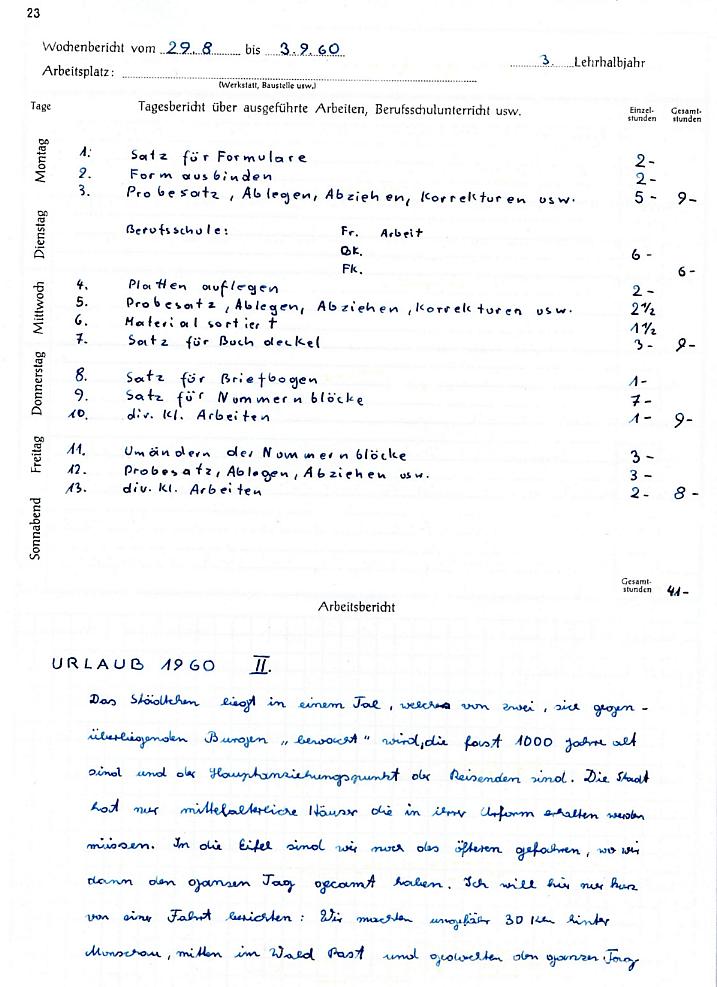 23
Wochenbericht vom 29.8 bis 3.9.60
3. Lehrhalbjahr
Arbeitsplatz:
(Werkstatt, Baustelle usw.)
Tage Tagesbericht über ausgeführte Arbeiten, Berufsschulunterricht usw. Einzel-stunden Gesamt-stunden
Montag
1. Satz für Formulare 2-
2. Form ausbinden 2-
3. Probesatz, Ablegen, Abziehen, Korrekturen usw. 5- 9-
Dienstag
Berufsschule: Fr. Arbeit
Gk. 6-
Fk. 6-
Mittwoch
4. Platten auflegen 2-
5. Probesatz, Ablegen, Abziehen, Korrekturen usw. 2½
6. Material sortiert 1½
7. Satz für Buchdeckel 3- 9-
Donnerstag
8. Satz für Briefbogen 1-
9. Satz für Nummernblöcke 7-
10. div. kl. Arbeiten 1- 9-
Freitag
11. Umändern der Nummernblöcke 3-
12. Probesatz, Ablegen, Abziehen usw. 3-
13. div. kl. Arbeiten 2- 8-
Sonnabend
Gesamt-stunden 41-
Arbeitsbericht
URLAUB 1960 II.
Das Städtchen liegt in einem Tal, welches von zwei, sich gegen-
überliegenden Burgen „bewacht" wird, die fast 1000 Jahre alt
sind und der Hauptanziehungspunkt der Reisenden sind. Die Stadt
hat nur mittelalterliche Häuser die in ihrer Urform erhalten werden
müssen. In die Eifel sind wir noch des öfteren gefahren, wo wir
dann den ganzen Tag gecamt haben. Ich will hier nur kurz
von einer Fahrt berichten: Wir machten ungefähr 30 Km hinter
Monschau, mitten im Wald Rast und gedachten den ganzen Tag